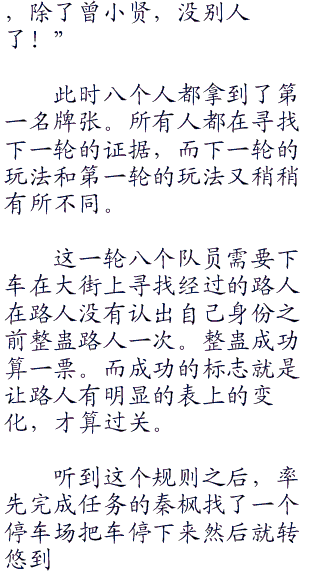 ，除了曾小贤，没别人
了！”
此时八个人都拿到了第
一名牌张。所有人都在寻找
下一轮的证据，而下一轮的
玩法和第一轮的玩法又稍稍
有所不同。
这一轮八个队员需要下
车在大街上寻找经过的路人
在路人没有认出自己身份之
前整蛊路人一次。整蛊成功
算一票。而成功的标志就是
让路人有明显的表上的变
化，才算过关。
听到这个规则之后，率
先完成任务的秦枫找了一个
停车场把车停下来然后就转
悠到